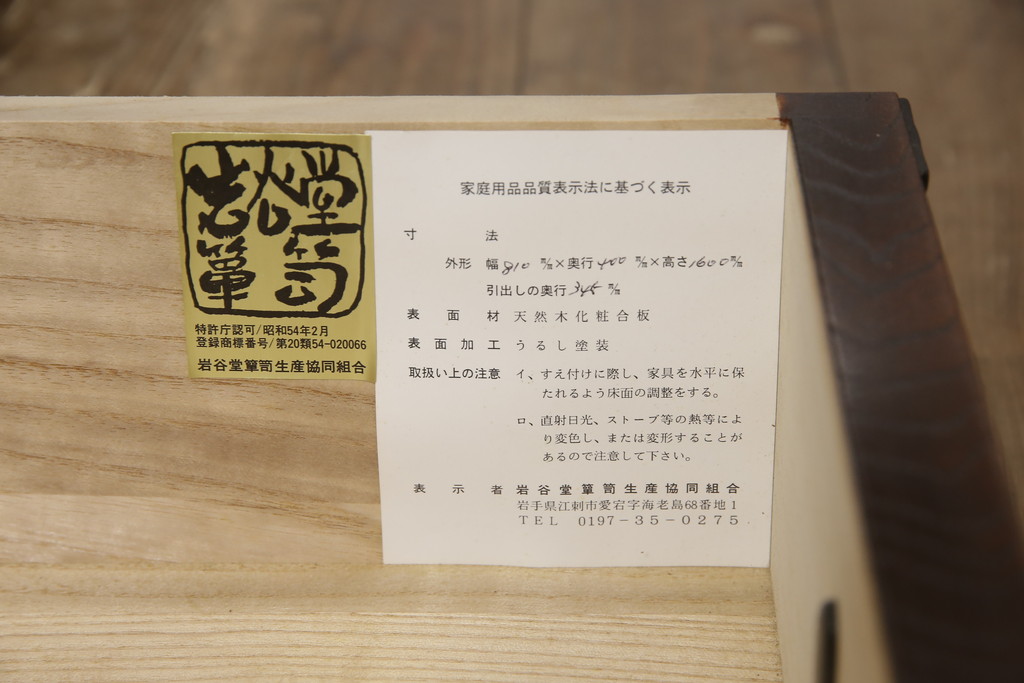 岩谷堂
簞笥
特許庁認可/昭和54年2月
登録商標番号/第20類54-020066
岩谷堂簞笥生産協同組合
家庭用品品質表示法に基づく表示
寸 法
外形 幅810 m/m×奥行400 m/m×高さ1600m/m
引出しの奥行345 m/m
表面材 天然木化粧合板
表面加工 うるし塗装
取扱い上の注意 イ、すえ付けに際し、家具を水平に保
たれるよう床面の調整をする。
ロ、直射日光、ストーブ等の熱等によ
り変色し、または変形することが
あるので注意して下さい。
表示者 岩谷堂簞笥生産協同組合
岩手県江刺市愛宕字海老島68番地1
TEL 0197-35-0275